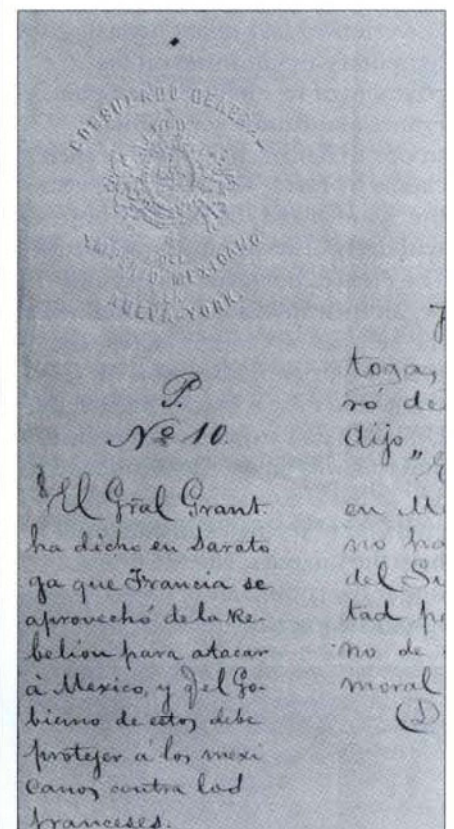 CONSULADO GENERAL
DEL
IMPERIO MEXICANO
NUEVA-YORK.
P.
Nº 10.
El Gral Grant
ha dicho en Sarato
ga que Francia se
aprovechó de la Re-
belion para atacar
á Mexico, y qe el Go-
bierno de estos debe
protejer á los mexi
canos contra los
franceses.
toga,
ró de
dijo "
en
no ha
del Su
tad
no de
moral